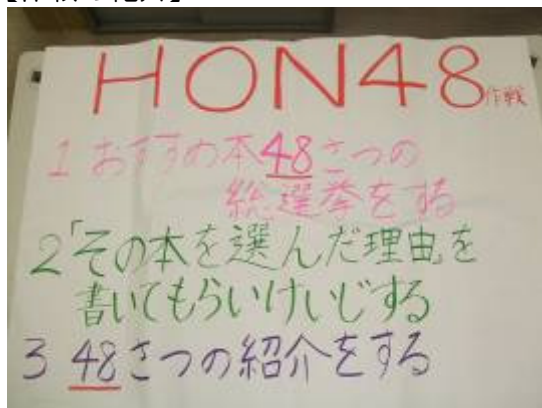 HON48作戦
1 おすすの本48さつの
総選挙をする
2「その本を選んだ理由」を
書いてもらいけいじする
3 48さつの紹介をする